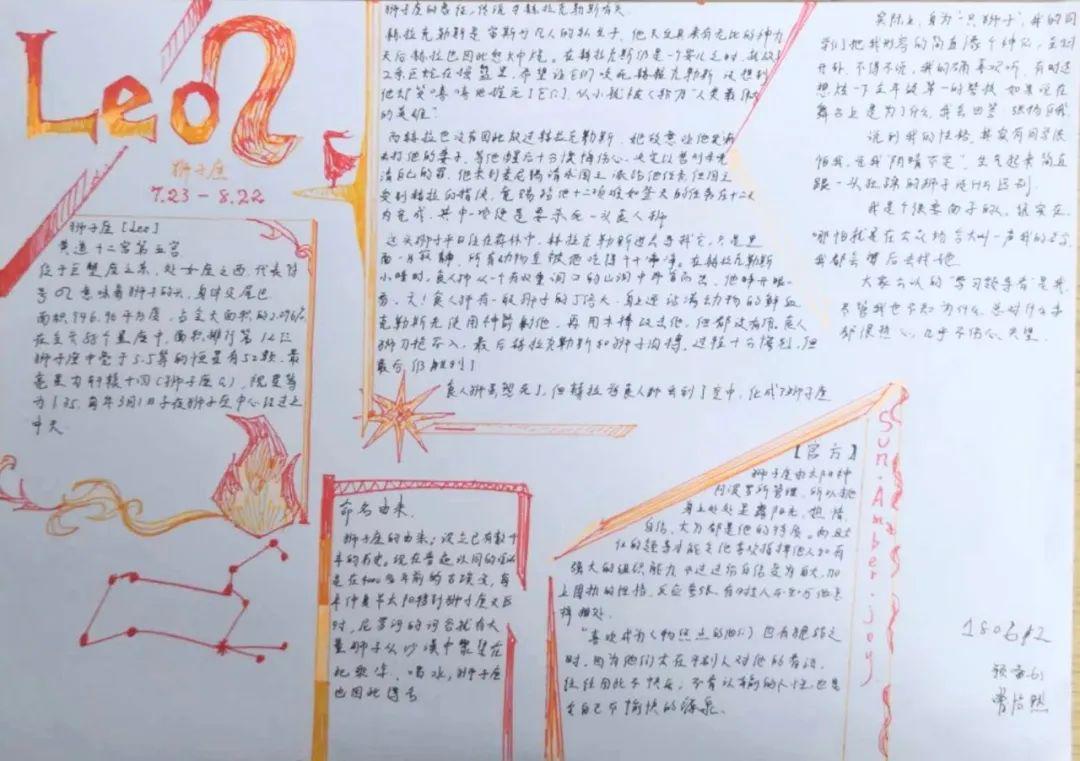 Leo
狮子座
7.23 - 8.22
狮子座 [Leo]
黄道十二宫第五宫
位于巨蟹座之东,处女座之西.代表符
号♌意味着狮子的头,身体及尾巴
面积946.96平方度,占全天面积的2.296%
在全天88个星座中,面积排行第12位
狮子座中亮于5.5等的恒星有52颗.最
亮星为轩辕十四(狮子座α),视星等
为1.35.每年3月1日子夜狮子座中心经过上
中天
狮子座的 传说中赫拉克勒斯有关
赫拉克勒斯是宙斯与凡人的私生子,他天生具来有无比的神力
天后赫拉也因此怒火中烧.在赫拉克斯仍是一个婴儿之时,就放了
2条巨蛇在摇篮里,希望让它们咬死赫拉克勒斯 没想到
他却笑嘻嘻地捏死了它们,从小就被人称为"人类最
的英雄"
而赫拉也没有因此放过赫拉克勒斯.她故意让他
去打他的妻子.等他醒后十分懊悔伤心.决定以苦刑来洗
清自己的罪.他来到麦尼锡请求国王派给他任务但国王
受到赫拉的指使,竟赐给他十二项难如登天的任务在十二天
内完成.其中一项便是要杀死一头食人狮
这头狮子平日住在森林中.赫拉克勒斯进去寻找它,只是里
面一片寂静,所有动物全被他吃得干干净净.在赫拉克勒斯
小睡时,食人狮从一个有双重洞口的山洞中昂首而出,他睁开眼一
看,天!食人狮有一般狮子的5倍大.身上还沾满动物的鲜血
克勒斯先使用神箭射他,再用木棒攻击他,但都没有用.食人
狮刀枪不入.最后赫拉克勒斯和狮子肉搏.过程十分惨烈,但
最后仍胜利了
食人狮虽然死了,但赫拉将食人狮丢到了空中,化成了狮子座
实际上,身为"一只狮子",我的同
学们把我形容的简直像个神人,
开外.不得不说,我的确喜欢听.有时还
想炫一下去年级第一的 如果说在
舞台上是为了什么,我会回答 张扬自我
说到我的性格,其实有同学很
怕我,说我"阴晴不定",生气起来简直
跟一头狂躁的狮子没什么区别.
我是个很要面子的人,说实在,
哪怕就是在大众场合大叫一声我的名字
我都会背后去找他
大家公认的"学习领导者"是我
尽管我也不知为什么.总对什么事
都很热心,几乎不伤心.失望.
命名由来
狮子座的由来,没定已有数千
年的历史.现在普遍认同的
是在4000多年前的古埃及,每
年仲夏节太阳移到狮子座天区
时,尼罗河的河谷就有大
量狮子从沙漠中聚集在
此乘凉、喝水,狮子座
也因此得名
【官方】
狮子座由太阳神
阿波罗所管理,所以他
身上处处是舞阳光.热情
自信、大方都是他的特质.
红的领导才能令他喜欢指挥他人加有
强大的组织能力.不过过分自信变为自大,加
上固执的性格,反应坦率,有时候人不知与他怎
样相处.
"喜欢成为人物焦点的他们 也有狼狈之
时,因为他们太在乎别人对他的看法.
往往因此不快乐,不肯认输的个性也是
令自己不愉快的源泉.
Sun.Amber.joy
1806班
曾 然